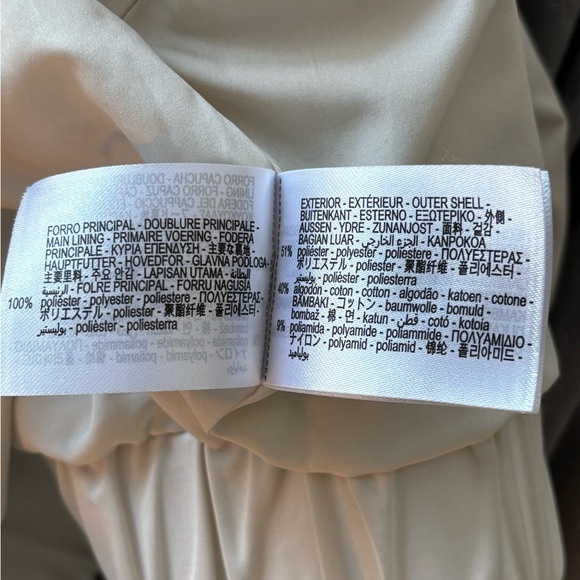 FORRO PRINCIPAL - DOUBLURE PRINCIPALE -
MAIN LINING - PRIMAIRE VOERING - FODERA
PRINCIPALE - ΚΥΡΙΑ ΕΠΕΝΔΥΣΗ - 主要な裏地 -
HAUPTFUTTER - HOVEDFOR - GLAVNA PODLOGA -
主要里料 - 주요 안감 - LAPISAN UTAMA - البطانة
الرئيسية - FOLRE PRINCIPAL - FORRU NAGUSIA
100% poliéster - polyester - poliestere - ΠΟΛΥΕΣΤΕΡΑΣ -
ポリエステル - poliester - 聚酯纤维 - 폴리에스터 -
بوليستير - polièster - poliesterra
EXTERIOR - EXTÉRIEUR - OUTER SHELL -
BUITENKANT - ESTERNO - ΕΞΩΤΕΡΙΚΟ - 外側 -
AUSSEN - YDRE - ZUNANJOST - 面料 - 겉감 -
BAGIAN LUAR - الجزء الخارجي - KANPOKOA
51% poliéster - polyester - poliestere - ΠΟΛΥΕΣΤΕΡΑΣ -
ポリエステル - poliester - 聚酯纤维 - 폴리에스터 -
بوليستير - polièster - poliesterra
40% algodón - coton - cotton - algodão - katoen - cotone -
ΒΑΜΒΑΚΙ - コットン - baumwolle - bomuld -
bombaž - 棉 - 면 - katun - قطن - cotó - kotoia
9% poliamida - polyamide - poliammide - ΠΟΛΥΑΜΙΔΙΟ -
ナイロン - polyamid - poliamid - 锦纶 - 폴리아미드 -
بولياميد